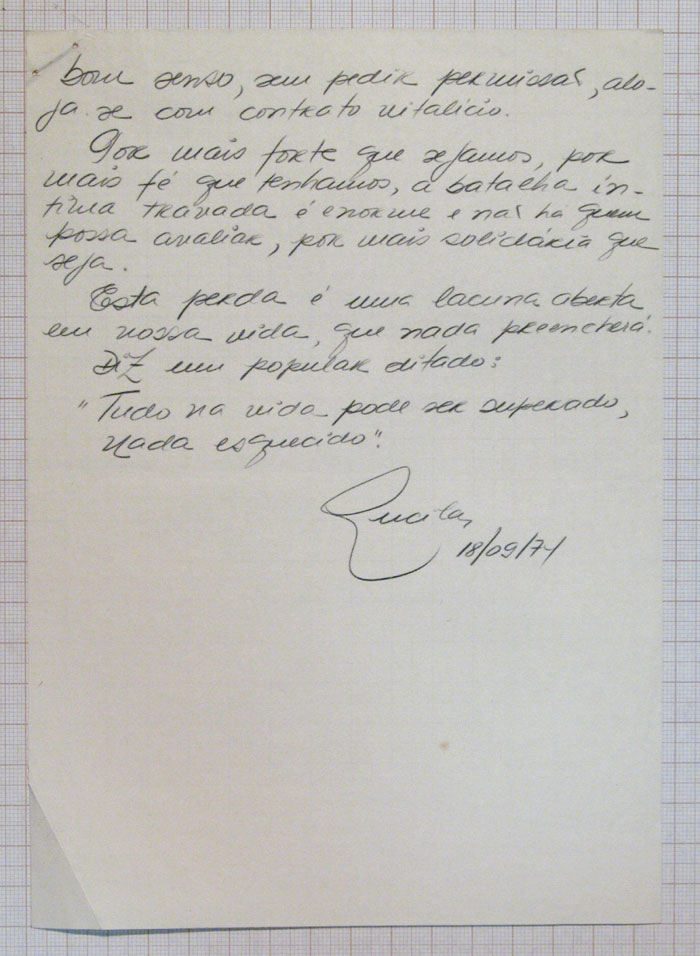 bom senso, sem pedir permissão, alo-
ja-se com contrato vitalício.
Por mais forte que sejamos, por
mais fé que tenhamos, a batalha ín-
tima travada é enorme e não há quem
possa avaliar, por mais solidária que
seja.
Esta perda é uma lacuna aberta
em nossa vida, que nada preencherá.
Diz um popular ditado:
"Tudo na vida pode ser superado,
nada esquecido".
Lucila
18/09/74